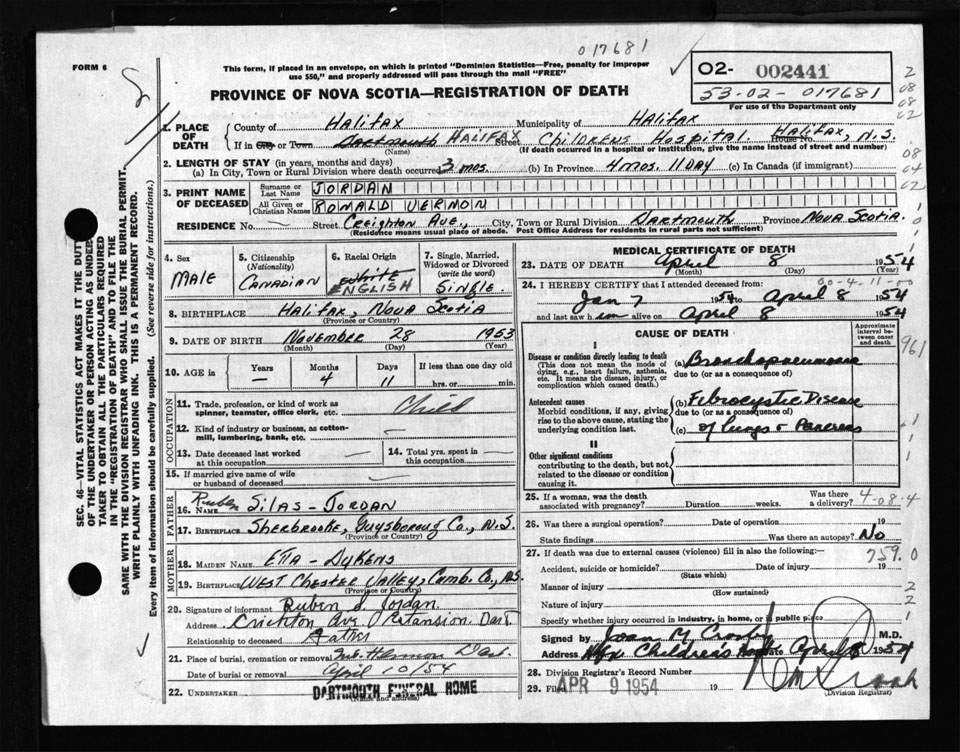 017681
FORM 6
This form, if placed in an envelope, on which is printed "Dominion Statistics—Free, penalty for improper
use $50," and properly addressed will pass through the mail "FREE"
02- 002441
53-02-017681
For use of the Department only
PROVINCE OF NOVA SCOTIA—REGISTRATION OF DEATH
1. PLACE OF DEATH
County of Halifax Municipality of Halifax
If in City or Town Dartmouth HALIFAX Street Childrens Hospital. House No. Halifax, N.S.
(Name) (If death occurred in a hospital or institution, give the name instead of street and number)
2. LENGTH OF STAY (in years, months and days)
(a) In City, Town or Rural Division where death occurred 3 mos. (b) In Province 4 mos. 11 Day (c) In Canada (if immigrant)
3. PRINT NAME OF DECEASED
Surname or Last Name JORDAN
All Given or Christian Names RONALD VERNON
RESIDENCE No. — Street Creighton Ave., City, Town or Rural Division Dartmouth Province Nova Scotia.
(Residence means usual place of abode. Post Office Address for residents in rural parts not sufficient)
4. Sex
Male
5. Citizenship
(Nationality)
Canadian
6. Racial Origin
White
ENGLISH
7. Single, Married, Widowed or Divorced
(write the word)
Single.
8. BIRTHPLACE Halifax, Nova Scotia
(Province or Country)
9. DATE OF BIRTH November 28 1953
(Month) (Day) (Year)
10. AGE in
Years Months Days If less than one day old
— 4 11 hrs. or min.
OCCUPATION
11. Trade, profession, or kind of work as
spinner, teamster, office clerk, etc. Child
12. Kind of industry or business, as cotton-
mill, lumbering, bank, etc. —
13. Date deceased last worked
at this occupation —
14. Total yrs. spent in
this occupation —
15. If married give name of wife
or husband of deceased —
FATHER
Ruben
16. Name Silas - Jordan
17. Birthplace Sherbrooke, Guysboroug Co., N.S.
(Province or Country)
MOTHER
18. Maiden Name Etta - Dykens
19. Birthplace West Chester Valley, Cumb. Co., N.S.
(Province or Country)
20. Signature of informant Ruben S. Jordan.
Address Crichton Ave Extansion. Dart
Relationship to deceased Father
21. Place of burial, cremation or removal Mt. Hermon Dart.
Date of burial or removal April 10/54
22. UNDERTAKER DARTMOUTH FUNERAL HOME
(Name and address)
MEDICAL CERTIFICATE OF DEATH
23. DATE OF DEATH April 8 1954
(Month) (Day) (Year)
00-4-11-00
24. I HEREBY CERTIFY that I attended deceased from:
Jan 7 1954 to April 8 1954
and last saw him alive on April 8 1954
CAUSE OF DEATH
Approximate interval between onset and death
I
Disease or condition directly leading to death
(This does not mean the mode of dying, e.g., heart failure, asthenia, etc. It means the disease, injury, or complication which caused death.)
(a) Bronchopneumonia
due to (or as a consequence of)
Antecedent causes
Morbid conditions, if any, giving rise to the above cause, stating the underlying condition last.
(b) Fibrocystic Disease
due to (or as a consequence of)
(c) of lungs & Pancreas
II
Other significant conditions
contributing to the death, but not related to the disease or condition causing it.
961
25. If a woman, was the death
associated with pregnancy? Duration weeks. Was there a delivery?
4-08-4
26. Was there a surgical operation? Date of operation 19
State findings Was there an autopsy? No
27. If death was due to external causes (violence) fill in also the following:—
759.0
Accident, suicide or homicide? Date of injury 19
(State which)
Manner of injury
(How sustained)
Nature of injury
Specify whether injury occurred in industry, in home, or in public place
Signed by Joan M. Crosby M.D.
Address Hfx Children's Hosp Date April 8 1954
28. Division Registrar's Record Number
29. Filed APR 9 1954 19
(Division Registrar)
SEC. 46—VITAL STATISTICS ACT MAKES IT THE DUTY
OF THE UNDERTAKER OR PERSON ACTING AS UNDER-
TAKER TO OBTAIN ALL THE PARTICULARS REQUIRED
IN THE "REGISTRATION OF DEATH" AND TO FILE THE
SAME WITH THE DIVISION REGISTRAR WHO SHALL ISSUE THE BURIAL PERMIT.
WRITE PLAINLY WITH UNFADING INK. THIS IS A PERMANENT RECORD.
Every item of information should be carefully supplied. (See reverse side for instructions.)